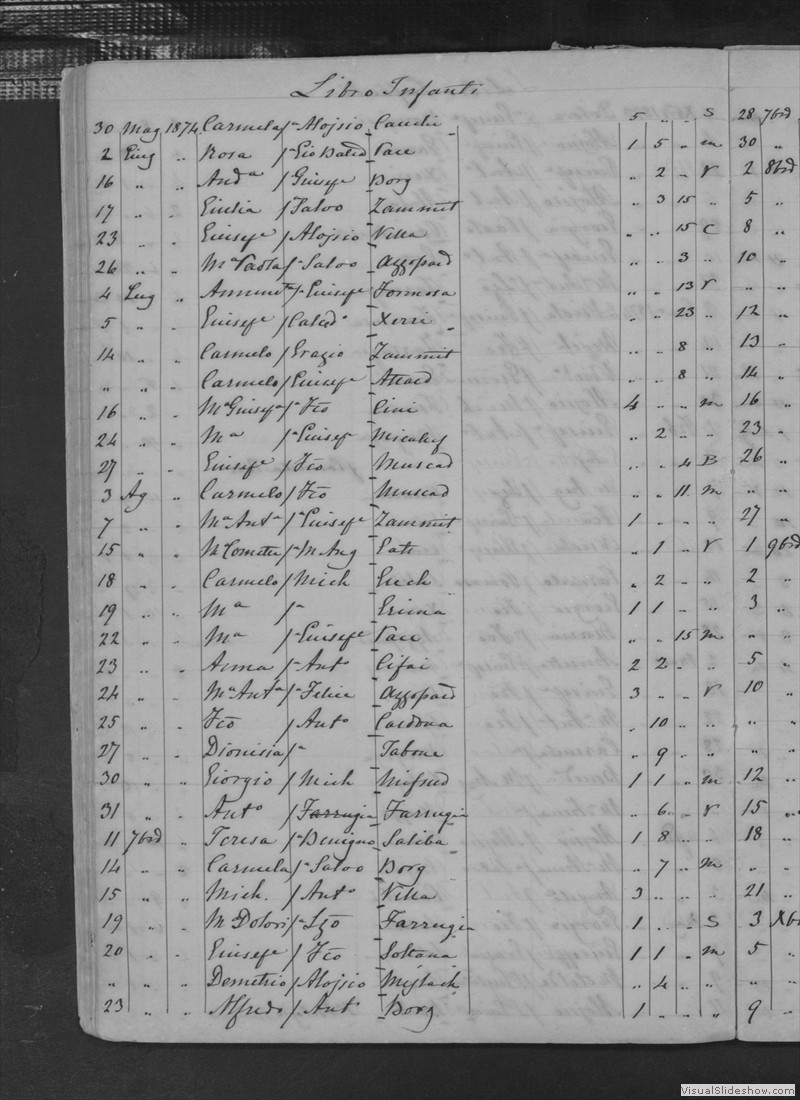 Libro Infanti
30 Mag 1874 Carmela /- Alojsio Cauchi 5 " - S 28 7brd
2 Giug " Rosa / Gio Batta Pace 1 5 " m 30 "
16 " " And.a / Giusepe Borg " 2 - V 2 8brd
17 " - Giulia / Salvo Zammit " 3 15 " 5 "
23 " - Giusep.e / Alojsio Villa " " 15 C 8 "
26 " " M.a /- Salvo Azzopard " " 3 " 10 "
4 Lug " Annunt.a /- Giusepe Formosa " - 13 V " "
5 " " Giusep.e / Calced.o Xerri " - 23 " 12 "
14 " " Carmelo / Grazio Zammit " " 8 " 13 "
" " " Carmelo / Giusepe Attard " - 8 " 14 "
16 " - M.a Giusep.a /- Fco Cini 4 " " m 16 "
24 " - M.a /- Giusepe Micalef " 2 " " 23 "
27 " - Giusep.e / Fco Muscad " " 4 B 26 "
3 Ag " Carmelo / Fco Muscad " " 11 m " "
7 " - M.a Ant.a /- Giusepe Zammit 1 " - " 27 "
15 " - /- M Ang " 1 " V 1 9brd
18 " - Carmelo / Mich Euch " 2 - " 2 "
19 " - M.a /- Grima 1 1 - " 3 "
22 " - M.a /- Giusepe Pace " " 15 m " "
23 " - Anna /- Ant.o Cifai 2 2 - " 5 "
24 " - M.a Ant.a /- Felice Azzopard 3 " - V 10 "
25 " - Fco / Ant.o Cardona " 10 " " " "
27 " - Dionisia /- Tabone " 9 " " " "
30 " " Giorgio / Mich Mifsud 1 1 " m 12 "
31 " - Ant.o / Farrugia Farrugia " 6 " V 15 "
11 7brd " Teresa /- Benigno Saliba 1 8 " " 18 "
14 " " Carmela /- Salvo Borg " 7 " m " "
15 " " Mich. / Ant.o Villa 3 " " " 21 "
19 " " M Dolori /- Lzo Farrugia 1 " - S 3 Xbr
20 " " Giusep.e / Fco Soltana 1 1 " m 5 "
" " " Demetrio / Alojsio Mejlach " 4 " " " "
23 " " Alfredo / Ant.o Borg 1 " " " 9 "
VisualSlideshow.com